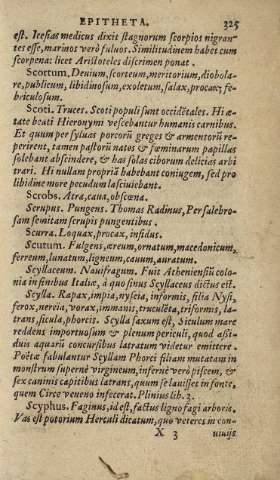 EPITHETA. 325
est. Icesias medicus dixit stagnorum scorpios nigran-
tes esse, marinos verò fuluos. Similitudinem habet cum
scorpena: licet Aristoteles discrimen ponat.
Scortum. Deuium, scorteum, meritorium, diobola-
re, publicum, libidinosum, exoletum, salax, procax; fe-
briculosum.
Scoti. Truces. Scoti populi sunt occidẽtales. Hi æ-
tate beati Hieronymi vescebantur humanis carnibus.
Et quum per syluas porcorũ greges & armentorũ re-
perirent, tamen pastorũ nates & fœminarum papillas
solebant abscindere, & has solas ciborum delicias arbi
trari. Hi nullam propriũ habebant coniugem, sed pro
libidine more pecudum lasciuiebant.
Scrobs. Atra, caua, obscœna.
Scrupus. Pungens. Thomas Radinus, Per salebro-
sam semitam scrupis pungentibus.
Scurra. Loquax, procax, infidus.
Scutum. Fulgens, æreum, ornatum, macedonicum,
ferreum, lunatum, ligneum, cauum, auratum.
Scyllaceum. Nauifragum. Fuit Atheniensiũ colo-
nia in finibus Italiæ, à quo sinus Scyllaceus dictus est.
Scylla. Rapax, impia, nyseia, informis, filia Nysi,
ferox, nereia, vorax, immanis, truculẽta, triformis, la-
trans, sicula, phorcis. Scylla saxum est, Siculum mare
reddens importuosum & plenum periculi, quod assi-
duis aquarũ concursibus latratum videtur emittere.
Poëtæ fabulantur Scyllam Phorci filiam mutatam in
monstrum supernè virgineum, infernè verò piscem, &
sex caninis capitibus latrans, quum se lauisset in fonte,
quem Circe veneno infecerat. Plinius lib. 3.
Scyphus. Faginus, id est, factus ligno fagi arboris.
Vas est potorium Herculi dicatum, quo veteres in con-
X 3 uiuijs